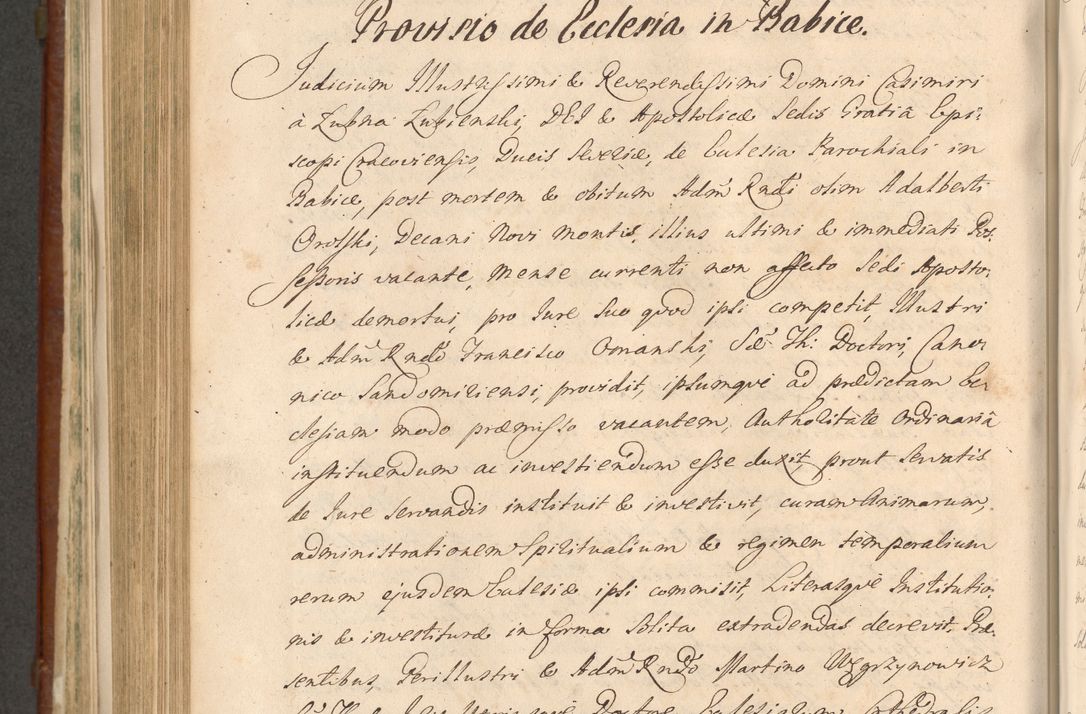 Provisio de Ecclesia in Babice.
Judicium Illustrissimi & Reverendissimi Domini Casimiri
à Łubna Łubienski, DEI & Apostolicæ Sedis Gratiâ Epi-
scopi Cracoviensis, Ducis Severiæ, de Ecclesia Parochiali in
Babice, post mortem & obitum Adm̃ Rndi olim Adalberti
Orolski, Decani Novi Montis, illius ultimi & immediati Pos-
sessoris vacante, Mense currenti non affecto Sedi Aposto-
licæ demortui, pro Jure Suo quod ipsi competit, Illustri
& Adm̃ Rndo Francisco Omanski, Sæ Th: Doctori, Cano-
nico Sandomiriensi, providit, ipsumqve ad prædictam Ec-
clesiam modo præmisso vacantem, Authoritate Ordinariâ
instituendum ac investiendum esse duxit prout servatis
de Jure servandis instituit & investivit, curam Animarum,
administrationem Spiritualium & regimen temporalium
rerum ejusdem Ecclesiæ ipsi commisit, Literasqve Institutio-
nis & investituræ in forma Solita extradendas decrevit. Præ-
sentibus, Perillustri & Adm̃ Rndo Martino Węgrzynowicz
Ecclesiarum Cathedralis